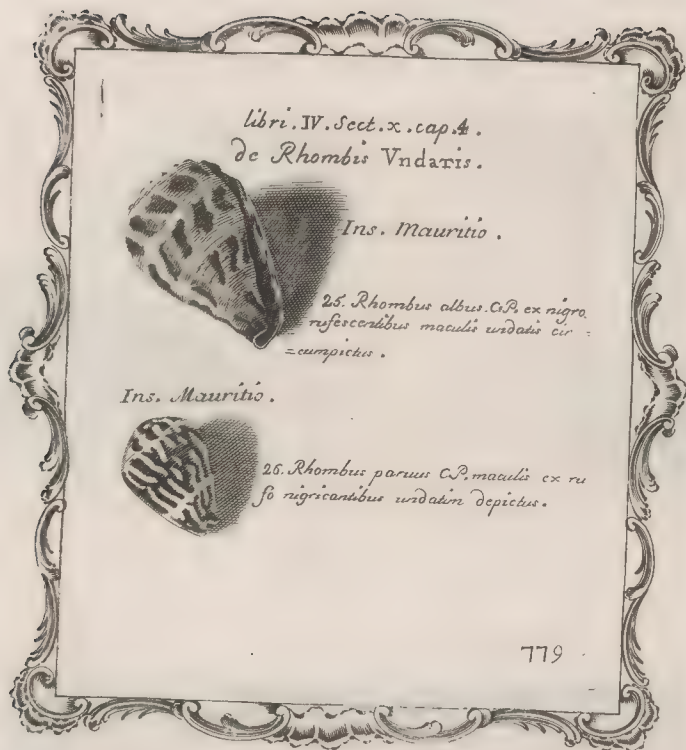 libri.IV.Sect.x.cap.4.
de Rhombis Vndatis.
Ins. Mauritio.
25. Rhombus albus.C.P. ex nigro
rufescentibus maculis undatis cir=
=cumpictus.
Ins. Mauritio.
26. Rhombus parvus C.P. maculis ex ru
fo nigricantibus undatim depictus.
779